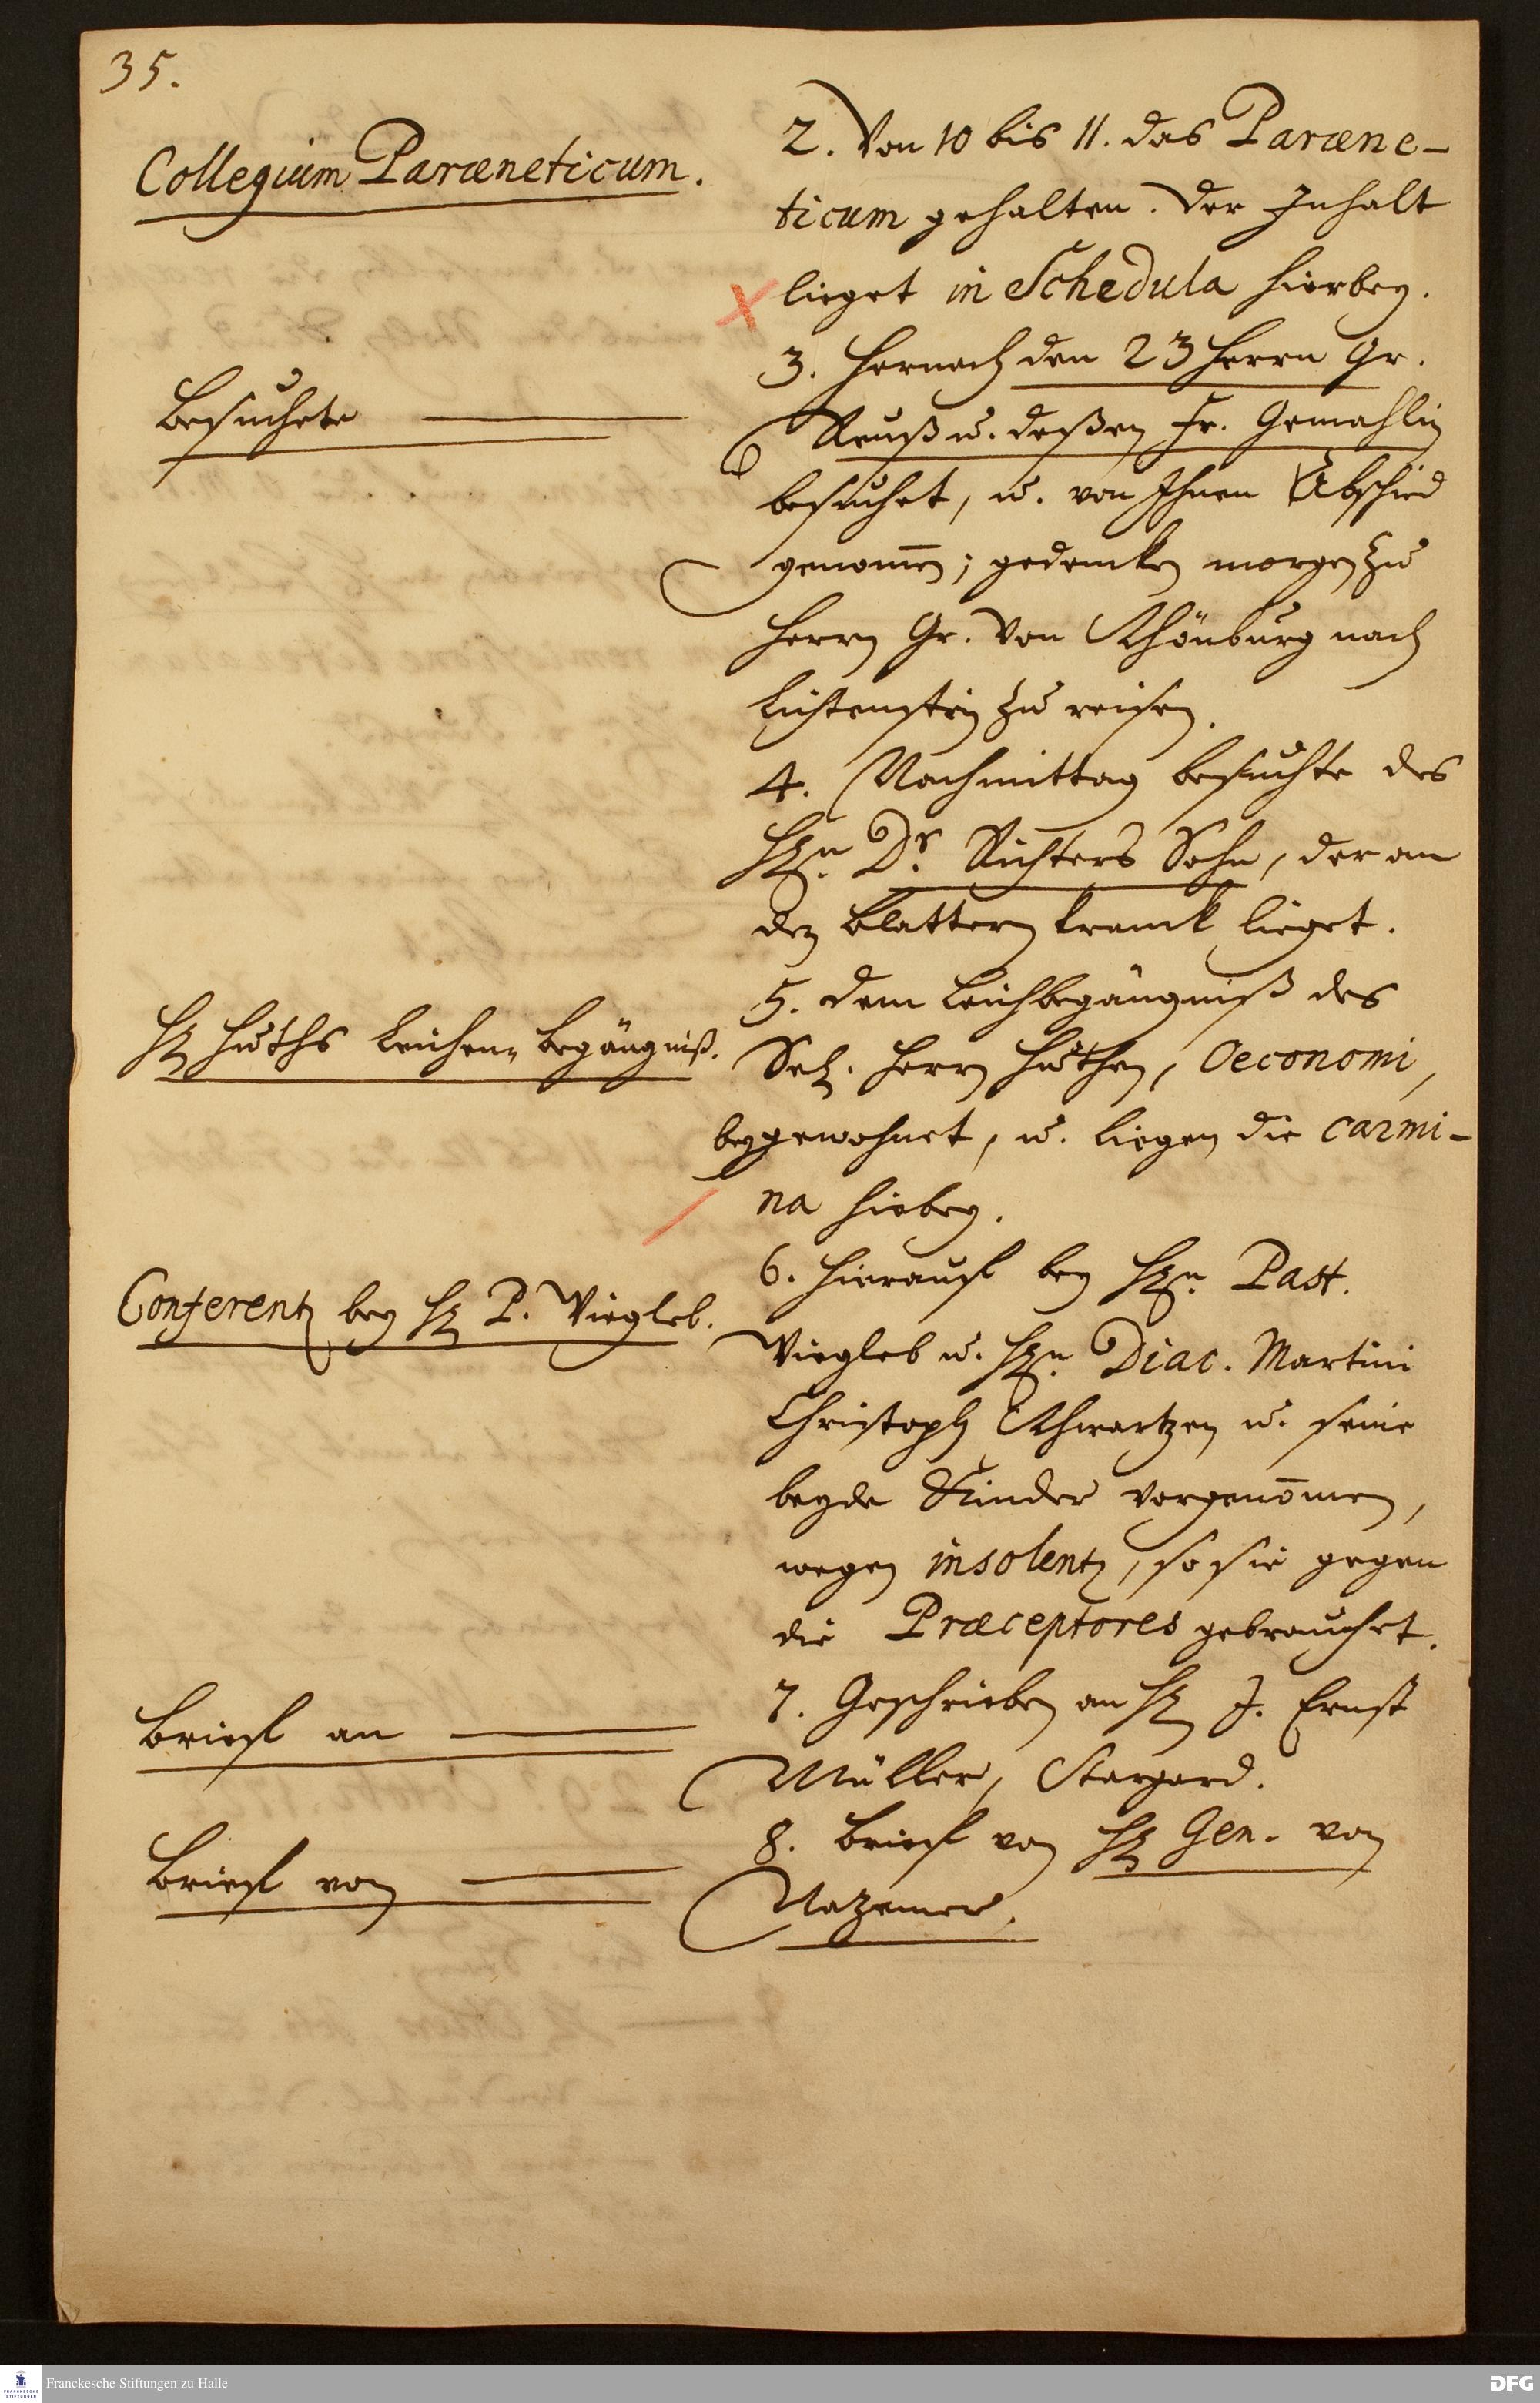 35.
Collegium Paræneticum.
2. Von 10 bis 11. das Paræne-
ticum gehalten. Der Inhalt
lieget in Schedula hierbey.
Besuchete
3. Hernach den 23 Herrn Gr.
Reuß u. deßen Fr. Gemahlin
besuchet, u. von Ihnen Abschied
genom̅en; gedencken morgen zu
Herrn Gr. von Schönburg nach
Lichtenstein zu reisen.
4. Nachmittag besuchte des
Hrn. Dr. Richters Sohn, der an
den Blattern kranck lieget.
H. Huths Leichen-Begängniß.
5. Dem Leichbegängniß des
Sel. Herrn Huthen, Oeconomi,
beygewohnet, u. liegen die carmi-
na hiebey.
Conferentz bey H. P. Wiegleb.
6. Hierauf bey Hrn. Past.
Wiegleb u. Hrn. Diac. Martini
Christoph Schwartzen u. seine
beyde Kinder vorgenom̅en,
wegen insolentz, so sie gegen
die Præceptores gebrauchet.
Brief an
7. Geschrieben an H. J. Ernst
Müller, Stargard.
Brief von
8. Brief von H. Gen. von
Natzemer.
Franckesche Stiftungen zu Halle
DFG